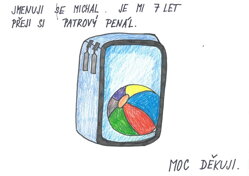 JMENUJI SE MICHAL. JE MI 7 LET
PŘEJI SI PATROVÝ PENÁL.
MOC DĚKUJI.